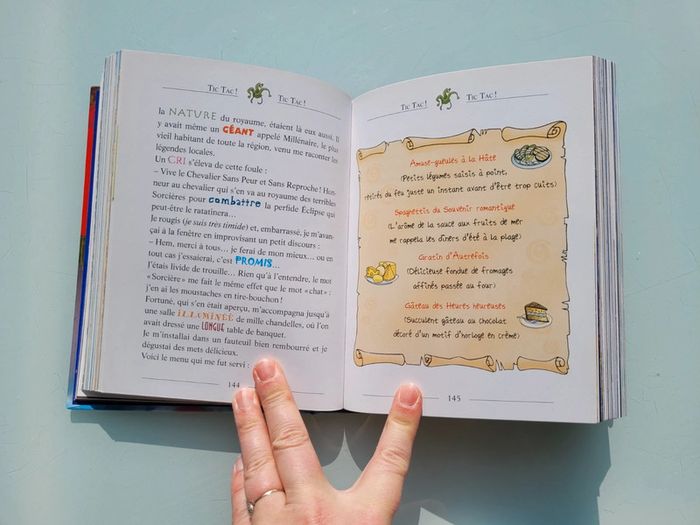 TIC TAC ! TIC TAC !
la NATURE du royaume, étaient là eux aussi. Il
y avait même un GÉANT appelé Millénaire, le plus
vieil habitant de toute la région, venu me raconter les
légendes locales.
Un CRI s'éleva de cette foule :
– Vive le Chevalier Sans Peur et Sans Reproche ! Hon-
neur au chevalier qui s'en va au royaume des terribles
Sorcières pour combattre la perfide Éclipse qui
peut-être le ratatinera...
Je rougis (je suis très timide) et, embarrassé, je m'avan-
çai à la fenêtre en improvisant un petit discours :
– Hem, merci à tous... je ferai de mon mieux... ou en
tout cas j'essaierai, c'est PROMIS...
J'étais livide de trouille... Rien qu'à l'entendre, le mot
« Sorcière » me fait le même effet que le mot « chat » :
j'en ai les moustaches en tire-bouchon !
Fortuné, qui s'en était aperçu, m'accompagna jusqu'à
une salle ILLUMINÉE de mille chandelles, où l'on
avait dressé une LONGUE table de banquet.
Je m'installai dans un fauteuil bien rembourré et je
dégustai des mets délicieux.
Voici le menu qui me fut servi :
144
TIC TAC ! TIC TAC !
Amuse-gueules à la Hâte
(Petits légumes saisis à point,
retirés du feu juste un instant avant d'être trop cuits)
Spaghettis du Souvenir romantique
(L'arôme de la sauce aux fruits de mer
me rappela les dîners d'été à la plage)
Gratin d'Autrefois
(Délicieuse fondue de fromages
affinés passée au four)
Gâteau des Heures heureuses
(Succulent gâteau au chocolat
décoré d'un motif d'horloge en crème)
145